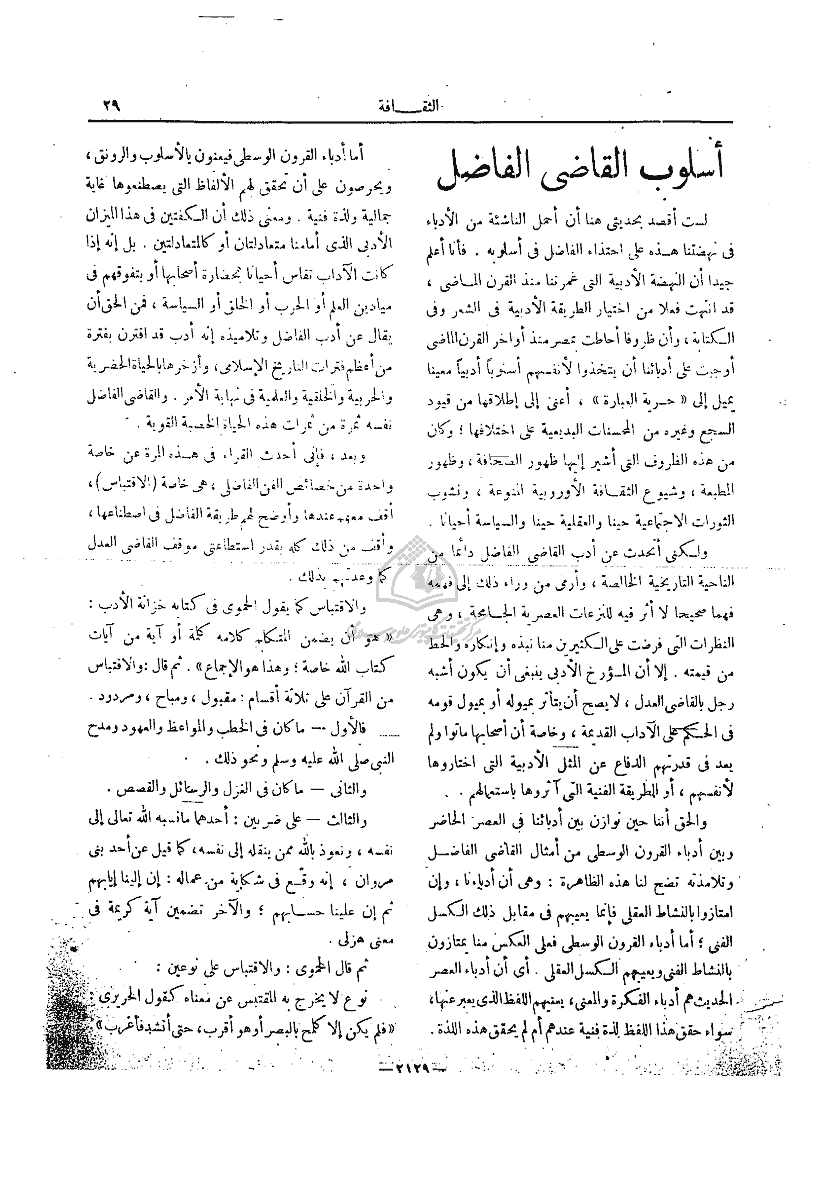 الثقافة
٢٩
أسلوب القاضى الفاضل
لست أقصد بحديثى هنا أن أحمل الناشئة من الأدباء
فى نهضتنا هذه على احتذاء الفاضل فى أسلوبه . فأنا أعلم
جيدا أن النهضة الأدبية التى غمرتنا منذ القرن الماضى ،
قد انتهت فعلا من اختيار الطريقة الأدبية فى الشعر وفى
الكتابة ، وأن ظروفا أحاطت بمصر منذ أواخر القرن الماضى
أوجبت على أدبائنا أن يتخذوا لأنفسهم أسلوباً أدبياً معينا
يميل إلى « حرية العبارة » ، أعنى إلى إطلاقها من قيود
السجع وغيره من المحسنات البديعية على اختلافها ؛ وكان
من هذه الظروف التى أشير إليها ظهور الصحافة ، وظهور
المطبعة ، وشيوع الثقافة الأوروبية المنوعة ، ونشوب
الثورات الاجتماعية حينا والعقلية حينا والسياسة أحيانا .
ولكنى أتحدث عن أدب القاضى الفاضل دائما من
الناحية التاريخية الخالصة ، وأرمى من وراء ذلك إلى فهمه
فهما صحيحا لا أثر فيه للنزعات العصرية الجامحة ، وهى
النظرات التى فرضت على الكثيرين منا نبذه وإنكاره والحط
من قيمته . إلا أن المؤرخ الأدبى ينبغى أن يكون أشبه
رجل بالقاضى العدل ، لا يصح أن يتأثر بميوله أو بميول قومه
فى الحكم على الآداب القديمة ، وخاصة أن أصحابها ماتوا ولم
يعد فى قدرتهم الدفاع عن المثل الأدبية التى اختاروها
لأنفسهم ، أو الطريقة الفنية التى آثروها باستعمالهم .
والحق أننا حين نوازن بين أدبائنا فى العصر الحاضر
وبين أدباء القرون الوسطى من أمثال القاضى الفاضل
وتلامذته تضح لنا هذه الظاهرة : وهى أن أدباءنا ، وإن
امتازوا بالنشاط العقلى فإنما يعيبهم فى مقابل ذلك الكسل
الفنى ؛ أما أدباء القرون الوسطى فعلى العكس منا يمتازون
بالنشاط الفنى ويعيبهم الكسل العقلى . أى أن أدباء العصر
الحديث هم أدباء الفكرة والمعنى، يعنيهم اللفظ الذى يعبر عنها،
سواء حقق هذا اللفظ لذة فنية عندهم أم لم يحقق هذه اللذة .
أما أدباء القرون الوسطى فيعنون بالأسلوب والرونق ،
ويحرصون على أن تحقق لهم الألفاظ التى يصطنعوها غاية
جمالية ولذة فنية . ومعنى ذلك أن الكفتين فى هذا الميزان
الأدبى الذى أمامنا متعادلتان أو كالمتعادلتين . بل إنه إذا
كانت الآداب تقاس أحيانا بحضارة أصحابها أو بتفوقهم فى
ميادين العلم أو الحرب أو الخلق أو السياسة ، فمن الحق أن
يقال عن أدب الفاضل وتلاميذه إنه أدب قد اقترن بفترة
من أعظم فترات التاريخ الإسلامى، وأزخرها بالحياة الحضرية
والحربية والخلقية والعلمية فى نهاية الأمر . والقاضى الفاضل
نفسه ثمرة من ثمرات هذه الحياة الخصبة القوية .
وبعد ، فإنى أحدث القراء فى هذه المرة عن خاصة
واحدة من خصائص الفن الفاضلى ، هى خاصة (الاقتباس) ،
أقف معهم عندها وأوضح لهم طريقة الفاضل فى اصطناعها ،
وأقف من ذلك كله بقدر استطاعتى موقف القاضى العدل
كما وعدتهم بذلك .
والاقتباس كما يقول الحموى فى كتابه خزانة الأدب :
« هو أن يضمن المتكلم كلامه كلمة أو آية من آيات
كتاب الله خاصة ؛ وهذا هو الإجماع » . ثم قال : والاقتباس
من القرآن على ثلاثة أقسام : مقبول ، ومباح ، ومردود .
فالأول — ما كان فى الخطب والمواعظ والعهود ومدح
النبى صلى الله عليه وسلم ونحو ذلك .
والثانى — ما كان فى الغزل والرسائل والقصص .
والثالث — على ضربين : أحدهما ما نسبه الله تعالى إلى
نفسه ، ونعوذ بالله ممن ينقله إلى نفسه، كما قيل عن أحد بنى
مروان ، إنه وقّع فى شكاية من عماله : إن إلينا إيابهم
ثم إن علينا حسابهم ؛ والآخر تضمين آية كريمة فى
معنى هزلى .
ثم قال الحموى : والاقتباس على نوعين :
نوع لا يخرج به المقتبس عن معناه كقول الحريرى :
«فلم يكن إلا كلمح بالبصر أو هو أقرب ، حتى أنشد فأغرب»
— ٢١٢٩ —